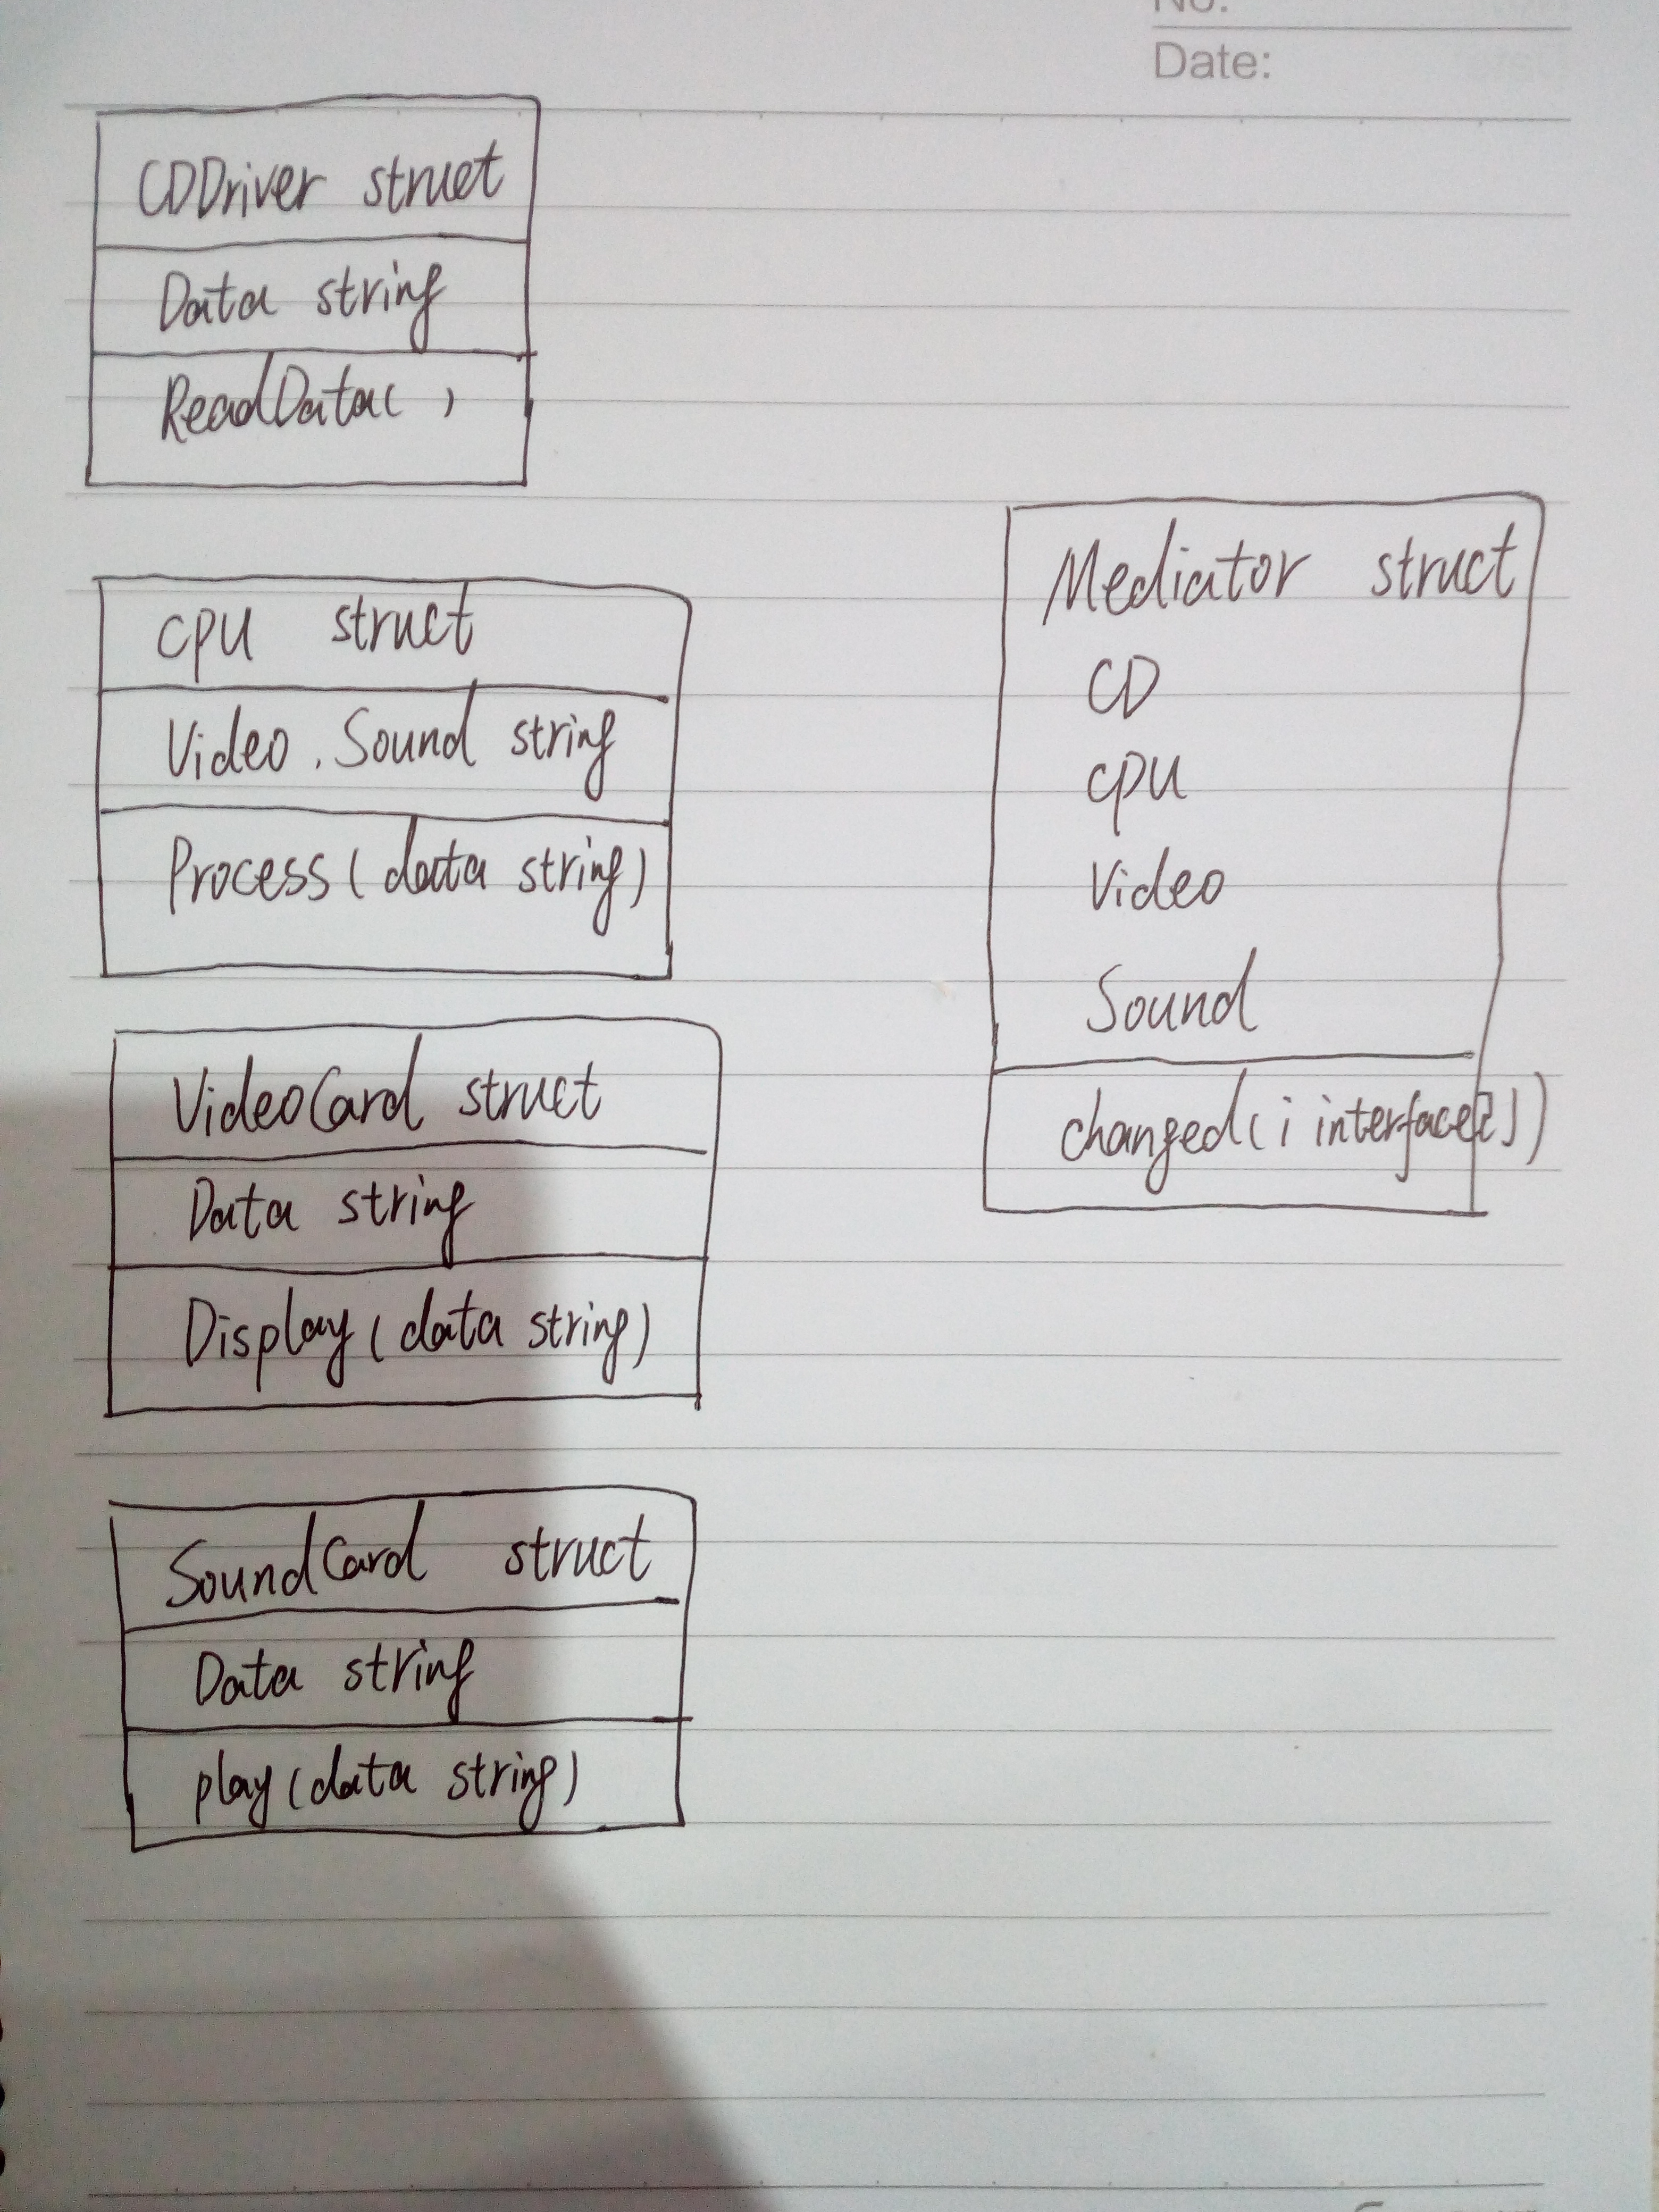 No.
Date:
CDDriver struct
Data string
ReadData( )
CPU struct
Video. Sound string
Process(data string)
VideoCard struct
Data string
Display(data string)
SoundCard struct
Data string
play(data string)
Mediator struct
CD
CPU
Video
Sound
changed(i interface{})